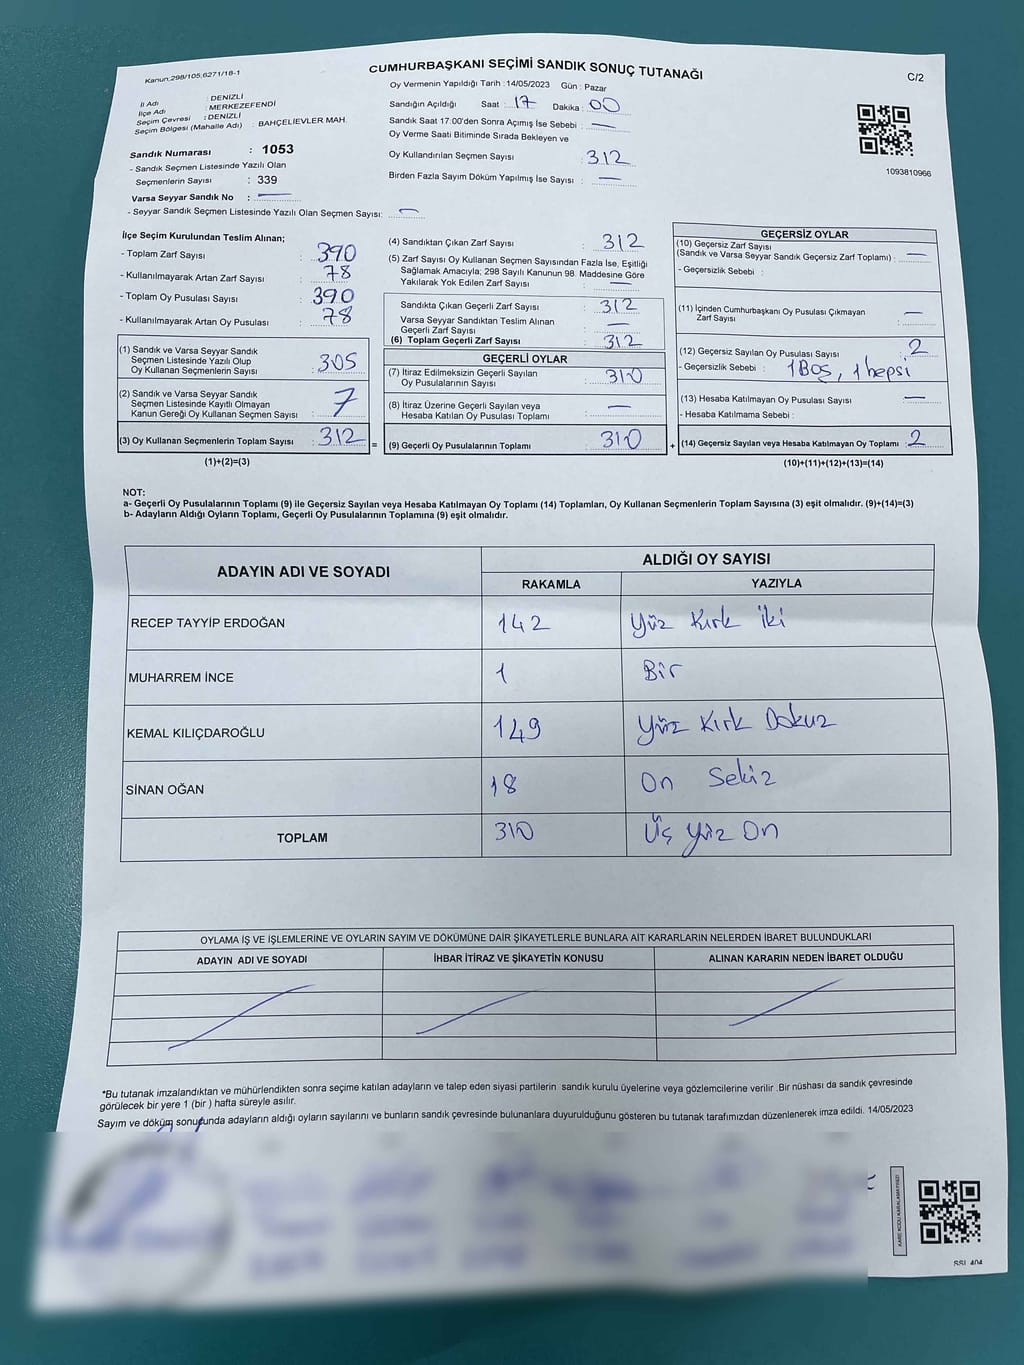 Kanun:298/105,6271/18-1
CUMHURBAŞKANI SEÇİMİ SANDIK SONUÇ TUTANAĞI
C/2
Oy Vermenin Yapıldığı Tarih :14/05/2023 Gün : Pazar
İl Adı : DENİZLİ
İlçe Adı : MERKEZEFENDİ
Seçim Çevresi : DENİZLİ
Seçim Bölgesi (Mahalle Adı) : BAHÇELİEVLER MAH.
Sandık Numarası : 1053
- Sandık Seçmen Listesinde Yazılı Olan
Seçmenlerin Sayısı : 339
Varsa Seyyar Sandık No : —
- Seyyar Sandık Seçmen Listesinde Yazılı Olan Seçmen Sayısı: —
Sandığın Açıldığı Saat : 17 Dakika : 00
Sandık Saat 17:00'den Sonra Açımış İse Sebebi : —
Oy Verme Saati Bitiminde Sırada Bekleyen ve
Oy Kullandırılan Seçmen Sayısı : 312
Birden Fazla Sayım Döküm Yapılmış İse Sayısı : —
1093810966
İlçe Seçim Kurulundan Teslim Alınan;
- Toplam Zarf Sayısı : 390
- Kullanılmayarak Artan Zarf Sayısı : 78
- Toplam Oy Pusulası Sayısı : 390
- Kullanılmayarak Artan Oy Pusulası : 78
(1) Sandık ve Varsa Seyyar Sandık
Seçmen Listesinde Yazılı Olup
Oy Kullanan Seçmenlerin Sayısı : 305
(2) Sandık ve Varsa Seyyar Sandık
Seçmen Listesinde Kayıtlı Olmayan
Kanun Gereği Oy Kullanan Seçmen Sayısı : 7
(3) Oy Kullanan Seçmenlerin Toplam Sayısı : 312 =
(1)+(2)=(3)
(4) Sandıktan Çıkan Zarf Sayısı : 312
(5) Zarf Sayısı Oy Kullanan Seçmen Sayısından Fazla İse, Eşitliği
Sağlamak Amacıyla; 298 Sayılı Kanunun 98. Maddesine Göre
Yakılarak Yok Edilen Zarf Sayısı : —
Sandıkta Çıkan Geçerli Zarf Sayısı : 312
Varsa Seyyar Sandıktan Teslim Alınan
Geçerli Zarf Sayısı : —
(6) Toplam Geçerli Zarf Sayısı : 312
GEÇERLİ OYLAR
(7) İtiraz Edilmeksizin Geçerli Sayılan
Oy Pusulalarının Sayısı : 310
(8) İtiraz Üzerine Geçerli Sayılan veya
Hesaba Katılan Oy Pusulası Toplamı : —
(9) Geçerli Oy Pusulalarının Toplamı : 310 +
GEÇERSİZ OYLAR
(10) Geçersiz Zarf Sayısı
(Sandık ve Varsa Seyyar Sandık Geçersiz Zarf Toplamı) : —
- Geçersizlik Sebebi :
(11) İçinden Cumhurbaşkanı Oy Pusulası Çıkmayan
Zarf Sayısı : —
(12) Geçersiz Sayılan Oy Pusulası Sayısı : 2
- Geçersizlik Sebebi : 1 Boş, 1 hepsi
(13) Hesaba Katılmayan Oy Pusulası Sayısı : —
- Hesaba Katılmama Sebebi :
(14) Geçersiz Sayılan veya Hesaba Katılmayan Oy Toplamı : 2
(10)+(11)+(12)+(13)=(14)
NOT:
a- Geçerli Oy Pusulalarının Toplamı (9) ile Geçersiz Sayılan veya Hesaba Katılmayan Oy Toplamı (14) Toplamları, Oy Kullanan Seçmenlerin Toplam Sayısına (3) eşit olmalıdır. (9)+(14)=(3)
b- Adayların Aldığı Oyların Toplamı, Geçerli Oy Pusulalarının Toplamına (9) eşit olmalıdır.
ADAYIN ADI VE SOYADI ALDIĞI OY SAYISI
RAKAMLA YAZIYLA
RECEP TAYYİP ERDOĞAN 142 Yüz Kırk İki
MUHARREM İNCE 1 Bir
KEMAL KILIÇDAROĞLU 149 Yüz Kırk Dokuz
SİNAN OĞAN 18 On Sekiz
TOPLAM 310 Üç Yüz On
OYLAMA İŞ VE İŞLEMLERİNE VE OYLARIN SAYIM VE DÖKÜMÜNE DAİR ŞİKAYETLERLE BUNLARA AİT KARARLARIN NELERDEN İBARET BULUNDUKLARI
ADAYIN ADI VE SOYADI İHBAR İTİRAZ VE ŞİKAYETİN KONUSU ALINAN KARARIN NEDEN İBARET OLDUĞU
*Bu tutanak imzalandıktan ve mühürlendikten sonra seçime katılan adayların ve talep eden siyasi partilerin sandık kurulu üyelerine veya gözlemcilerine verilir .Bir nüshası da sandık çevresinde
görülecek bir yere 1 (bir ) hafta süreyle asılır.
Sayım ve döküm sonucunda adayların aldığı oyların sayılarını ve bunların sandık çevresinde bulunanlara duyurulduğunu gösteren bu tutanak tarafımızdan düzenlenerek imza edildi. 14/05/2023